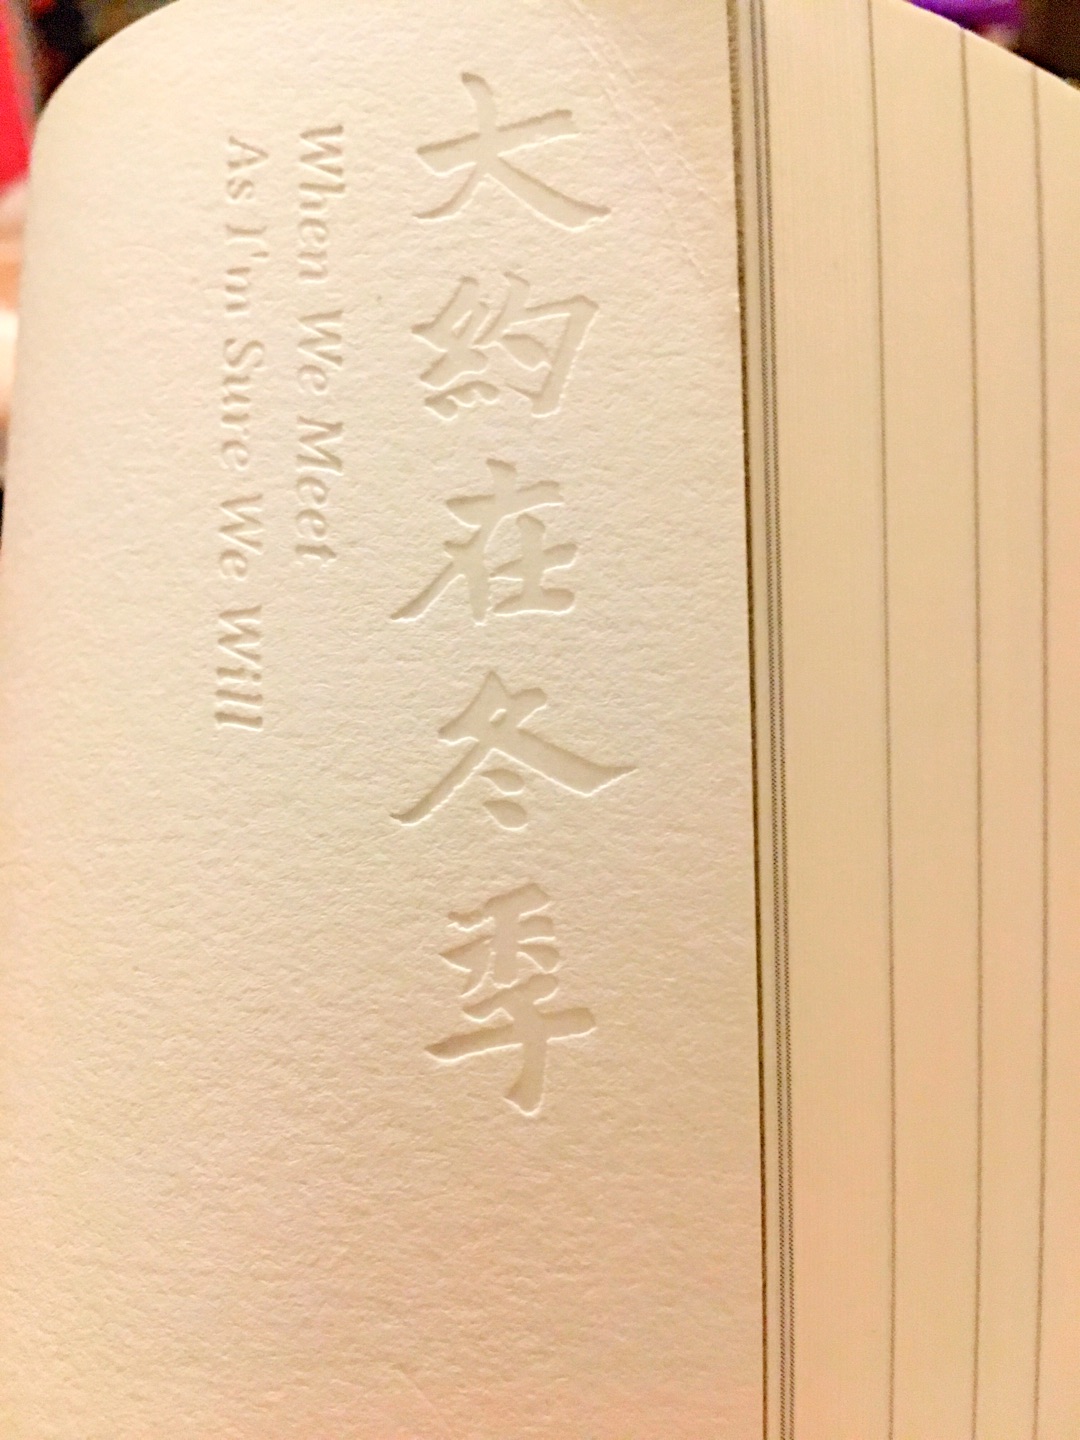 大約在冬季
When We Meet
As I'm Sure We Will